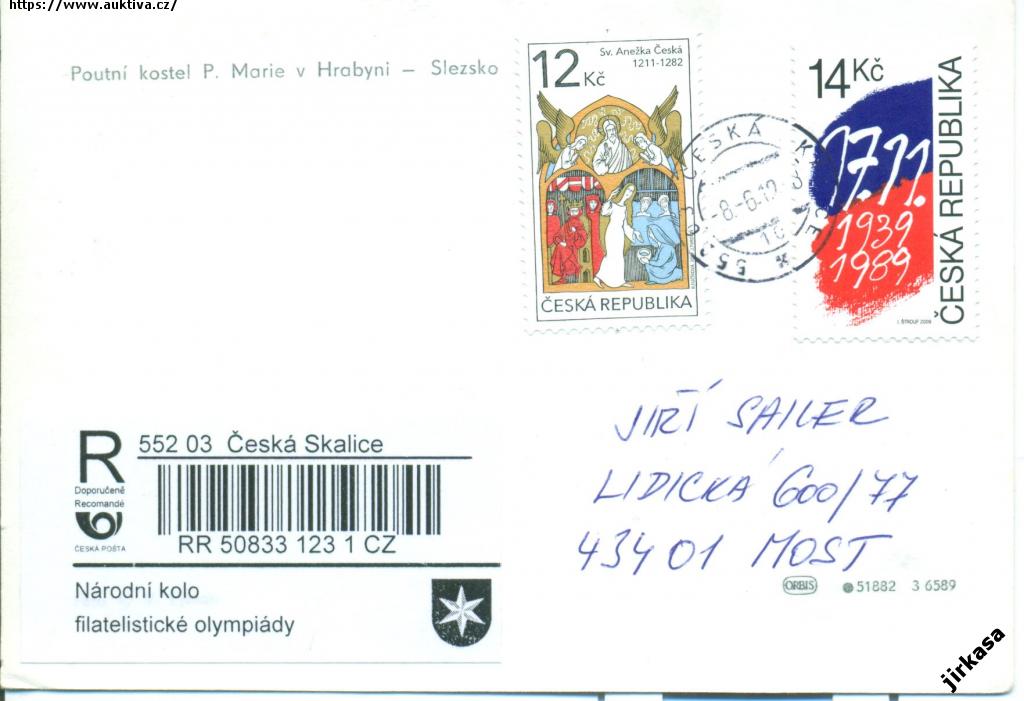 https://www.auktiva.cz/
Poutní kostel P. Marie v Hrabyni – Slezsko
12 Kč
Sv. Anežka Česká
1211-1282
ČESKÁ REPUBLIKA
14 Kč
17.11.
1939
1989
ČESKÁ REPUBLIKA
I. ŠTROUF 2009
552 03 ČESKÁ SKALICE
-8.-6.12
JIŘÍ SAILER
LIDICKÁ 600/77
434 01 MOST
R
Doporučeně
Recomandé
ČESKÁ POŠTA
552 03 Česká Skalice
RR 50833 123 1 CZ
Národní kolo
filatelistické olympiády
ORBIS 51882 3 6589
jirkasa